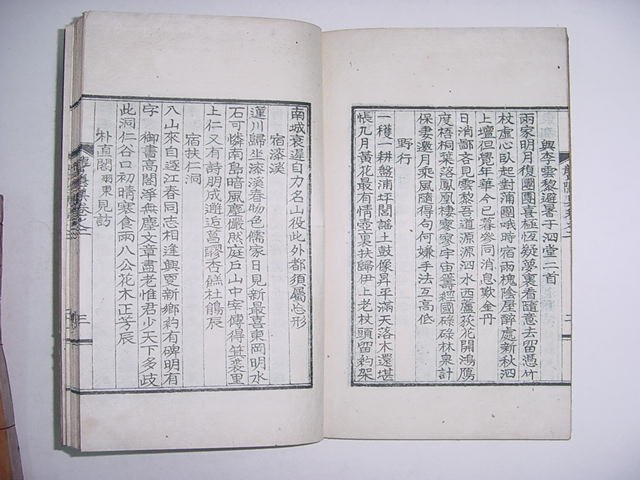 與李雲黎避暑于泗堂二首
兩家明月復團團喜極恆疑夢裏看隨意去留憑竹
杖虛心臥起對蒲團哦時宿雨槐陰屋醉處新秋泗
上壇但覺年華今已暮參同消息欺金丹
日消鄙吝見雲黎吾道源源泗水西蘆荻花開鴻鴈
度梧桐葉落鳳凰棲寥寥宇宙籌經國碌碌林泉計
保妻邀月乘風隨得句何嫌手法互高低
野行
一穫一耕盤浦圩謳謠土鼓像昇平滿天落木還堪
悵九月黃花最有情壺裏扶歸伊上老杖頭留約架
南城衰遲自力名山役此外都須屬忘形
宿漆溪
蓮川歸坐漆溪春物色儒家日見新最喜東岡明水
石可憐南島暗風塵儼然庭戶山中宰傳得箕裘里
上仁又有詩朋成邂逅菖醪杏餻杜鵑辰
宿扶仁洞
入山來自逐江春同志相逢興更新鄉約有碑明有
字 御書高閣淨無塵文章盡老惟君少天下多歧
此洞仁谷口初晴寒食雨八公花木正芳辰
朴直閣雨東見訪
三